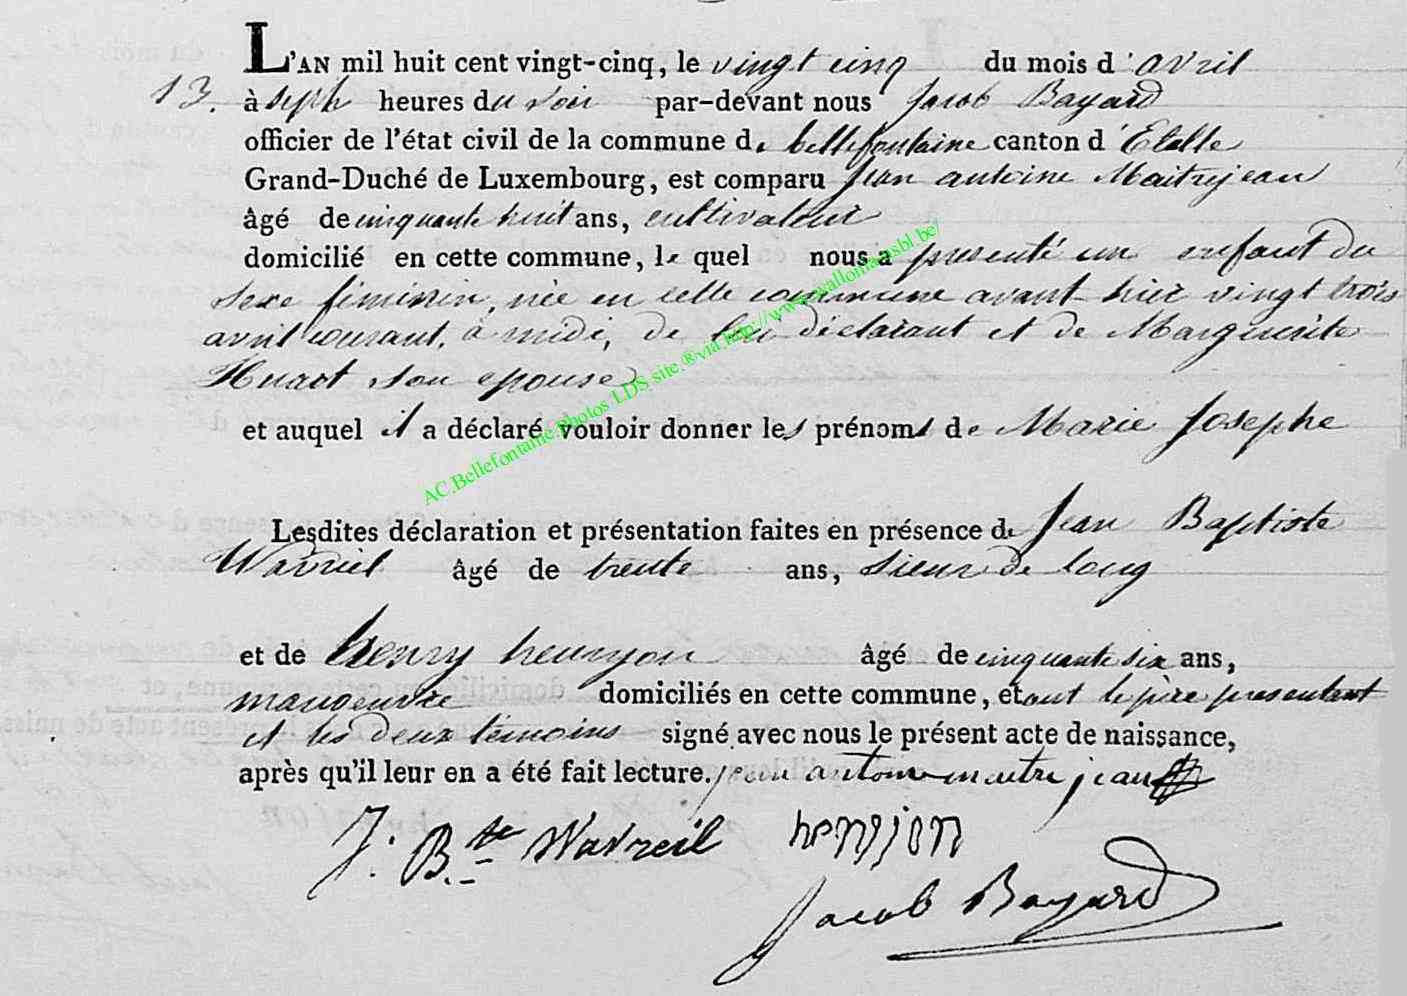 L'AN mil huit cent vingt-cinq, le vingt cinq du mois d'avril
13. à Sept heures du soir par-devant nous Jacob Bayard
officier de l'état civil de la commune de bellefontaine canton d'Etalle
Grand-Duché de Luxembourg, est comparu Jean antoine Maitrejean
âgé de cinquante huit ans, cultivateur
domicilié en cette commune, le quel nous a presenté un enfant du
sexe féminin, née en cette commune avant-hier vingt trois
avril courant, à midi, de lui déclarant et de Marguerite
Huart son epouse
et auquel il a déclaré vouloir donner les prénoms de Marie Josephe
AC.Bellefontaine.photos LDS site.®via.http://www.wallonia.asbl.be/
Lesdites déclaration et présentation faites en présence de Jean Baptiste
Wavreil âgé de trente ans, sieur de long
et de henry hennjon âgé de cinquante six ans,
manoeuvre domiciliés en cette commune, et ont le père presentant
et les deux témoins signé avec nous le présent acte de naissance,
après qu'il leur en a été fait lecture. jean antoine maitrejean
J. B.te Wavreil henrjon
Jacob Bayard